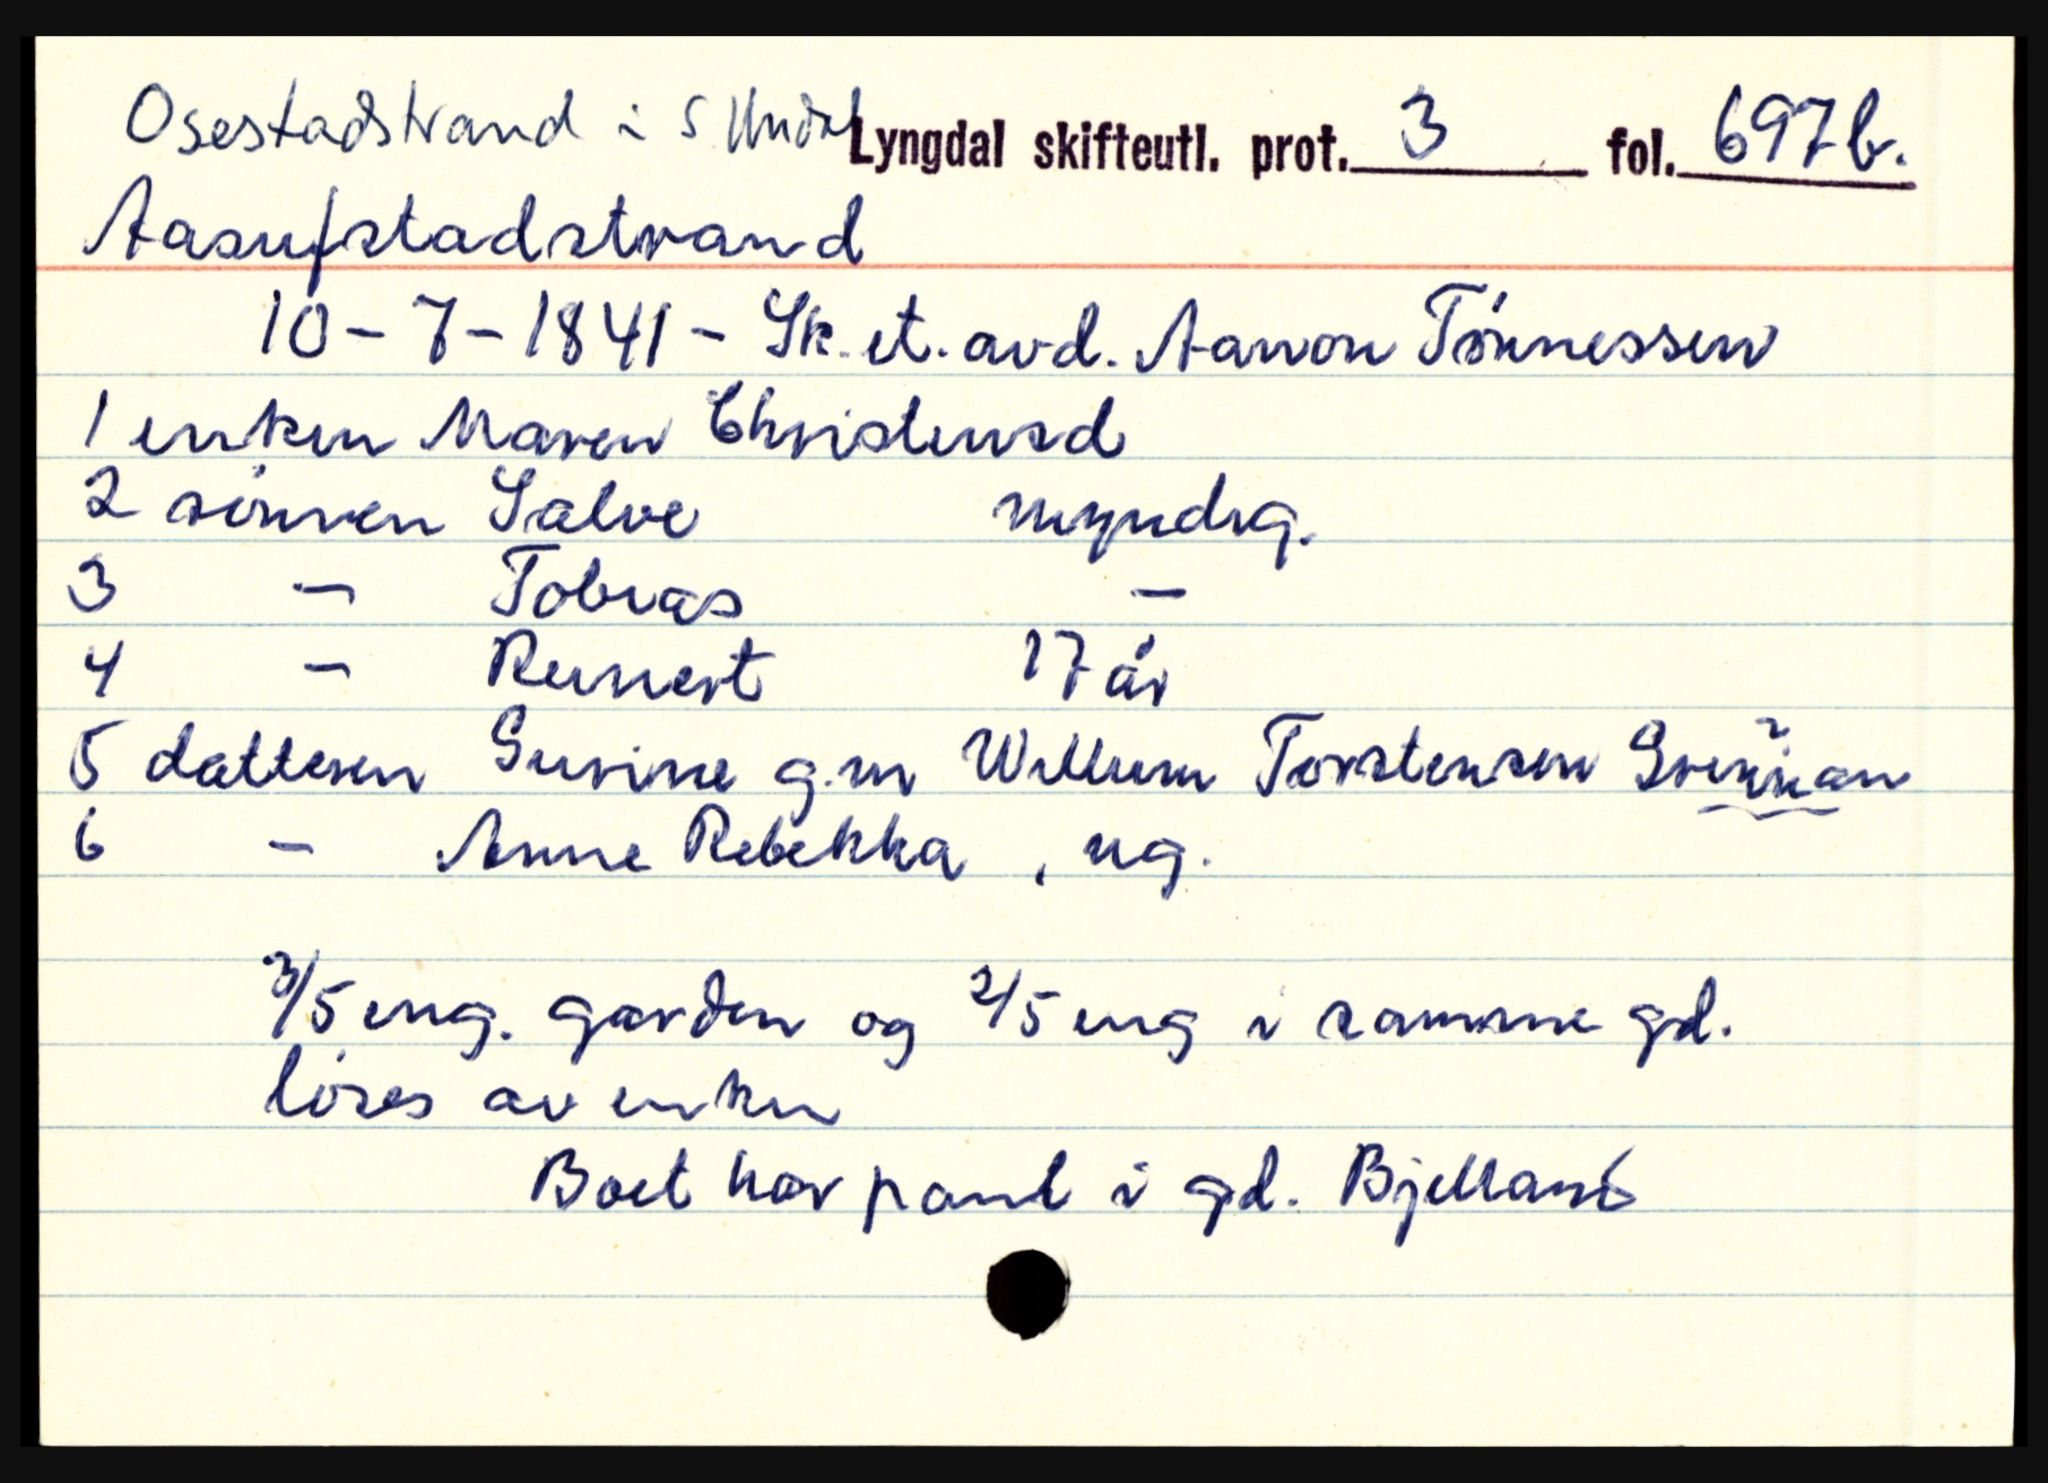 Osestadstrand i S. Undal Lyngdal skifteutl. prot. 3 fol. 697b.
Aasufstadstrand
10-7-1841 - Sk. et. avd. Aanon Tönnessen
1 enken Maren Christensd
2 sönnen Salve myndig.
3 - Tobias -
4 - Reinert 17 år
5 datteren Gurine g.m Willum Torstensen
6 - Anne Rebekka, ug.
3/5 eng. garden og 2/5 eng i samme gd.
löses av enken
Boet har pant i gd. Bjelland